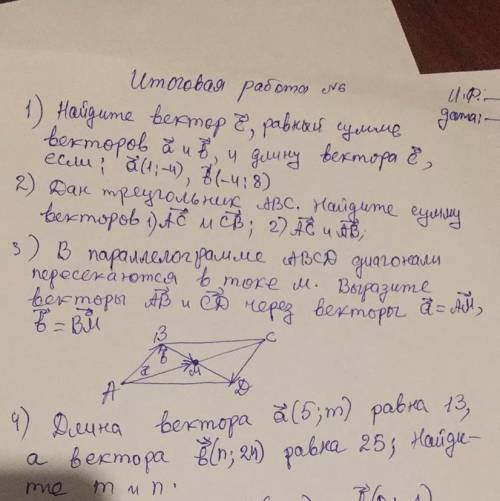 Итоговая работа №6
И.Ф.:
дата:
1) Найдите вектор c⃗, равный сумме
векторов a⃗ и b⃗, и длину вектора c⃗,
если; a⃗(1;-4), b⃗(-4;8)
2) Дан треугольник ABC. Найдите сумму
векторов 1) AC⃗ и CB⃗; 2) AC⃗ и AB⃗;
3) В параллелограмме ABCD диагонали
пересекаются в токе M. Выразите
векторы AB⃗ и CD⃗ через векторы a⃗ = AM⃗,
b⃗ = BM⃗
B C
b
a M
A D
4) Длина вектора a⃗(5;m) равна 13,
а вектора b⃗(n;24) равна 25; Найди-
те m и n.